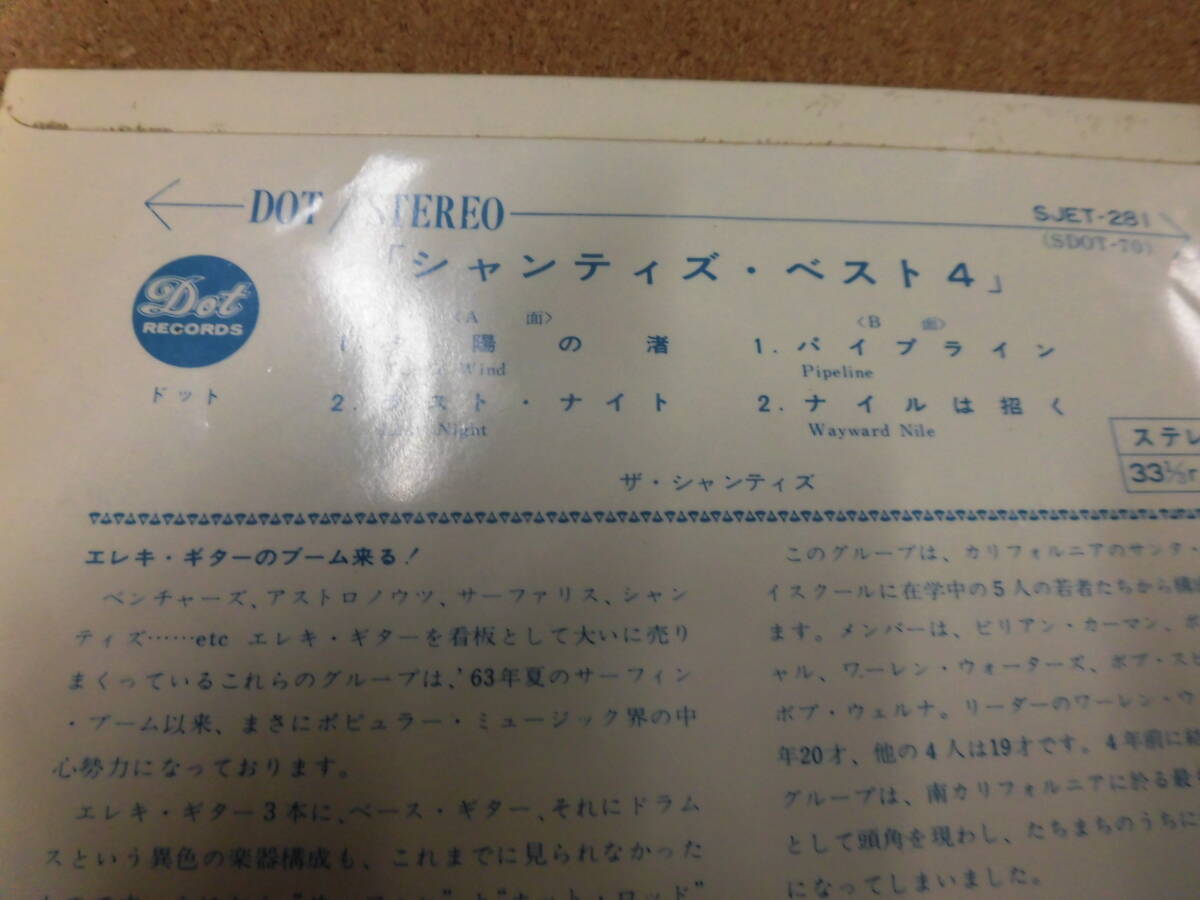 DOT / STEREO
SJET-281
(SDOT-70)
「シャンティズ・ベスト4」
Dot
RECORDS
ドット
〈A 面〉
1. 陽の渚
Wind
2. スト・ナイト
Night
〈B 面〉
1. パイプライン
Pipeline
2. ナイルは招く
Wayward Nile
ザ・シャンティズ
ステレ
33⅓r
エレキ・ギターのブーム来る!
ベンチャーズ、アストロノウツ、サーファリス、シャン
ティズ……etc エレキ・ギターを看板として大いに売り
まくっているこれらのグループは、'63年夏のサーフィン
・ブーム以来、まさにポピュラー・ミュージック界の中
心勢力になっております。
エレキ・ギター3本に、ベース・ギター、それにドラム
スという異色の楽器構成も、これまでに見られなかった
”と“ホット・ロッド”
このグループは、カリフォルニアのサンタ・
イスクールに在学中の5人の若者たちから構
ます。メンバーは、ビリアン・カーマン、ボ
ャル、ワーレン・ウォーターズ、ボブ・スピ
ボブ・ウェルナ。リーダーのワーレン・ウ
年20才、他の4人は19才です。4年前に結
グループは、南カリフォルニアに於る最
として頭角を現わし、たちまちのうちに
になってしまいました。